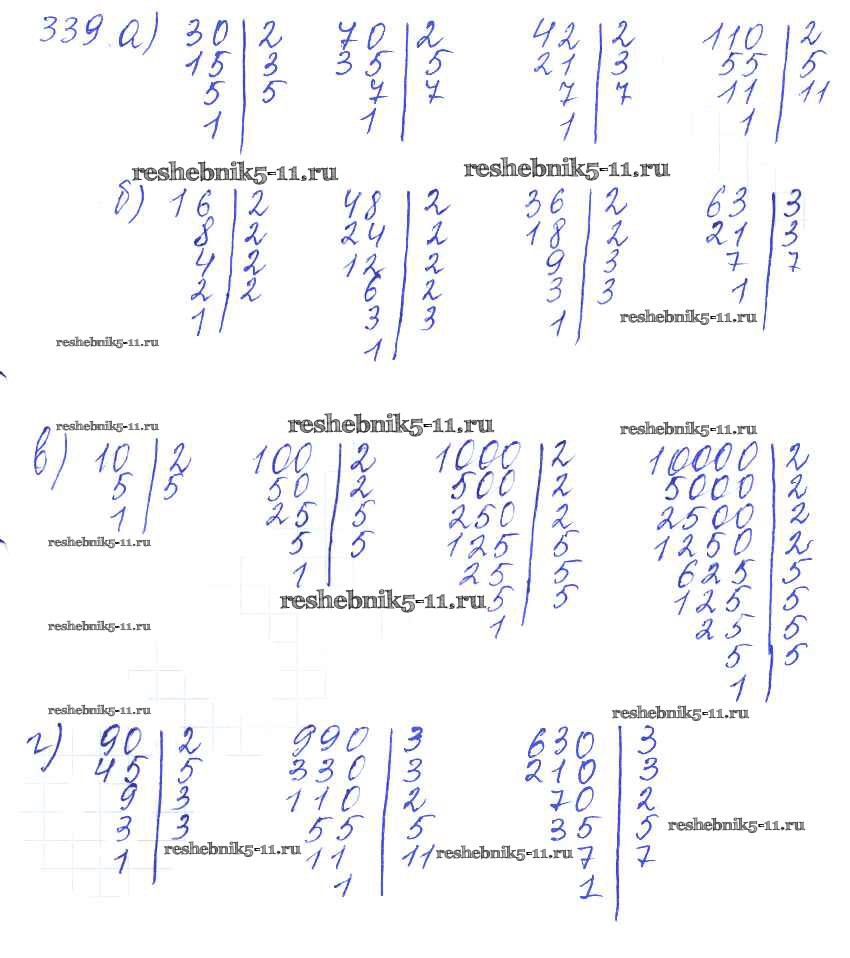 339. а) 30 | 2 70 | 2 42 | 2 110 | 2
15 | 3 35 | 5 21 | 3 55 | 5
5 | 5 7 | 7 7 | 7 11 | 11
1 1 1 1
reshebnik5-11.ru reshebnik5-11.ru
б) 16 | 2 48 | 2 36 | 2 63 | 3
8 | 2 24 | 2 18 | 2 21 | 3
4 | 2 12 | 2 9 | 3 7 | 7
2 | 2 6 | 2 3 | 3 1
1 3 | 3 1 reshebnik5-11.ru
reshebnik5-11.ru 1
reshebnik5-11.ru reshebnik5-11.ru reshebnik5-11.ru
в) 10 | 2 100 | 2 1000 | 2 10000 | 2
5 | 5 50 | 2 500 | 2 5000 | 2
1 25 | 5 250 | 2 2500 | 2
reshebnik5-11.ru 5 | 5 125 | 5 1250 | 2
1 25 | 5 625 | 5
reshebnik5-11.ru 5 | 5 125 | 5
reshebnik5-11.ru 1 25 | 5
5 | 5
1
reshebnik5-11.ru reshebnik5-11.ru
г) 90 | 2 990 | 3 630 | 3
45 | 5 330 | 3 210 | 3
9 | 3 110 | 2 70 | 2
3 | 3 55 | 5 35 | 5 reshebnik5-11.ru
1 reshebnik5-11.ru 11 | 11 reshebnik5-11.ru 7 | 7
1 1